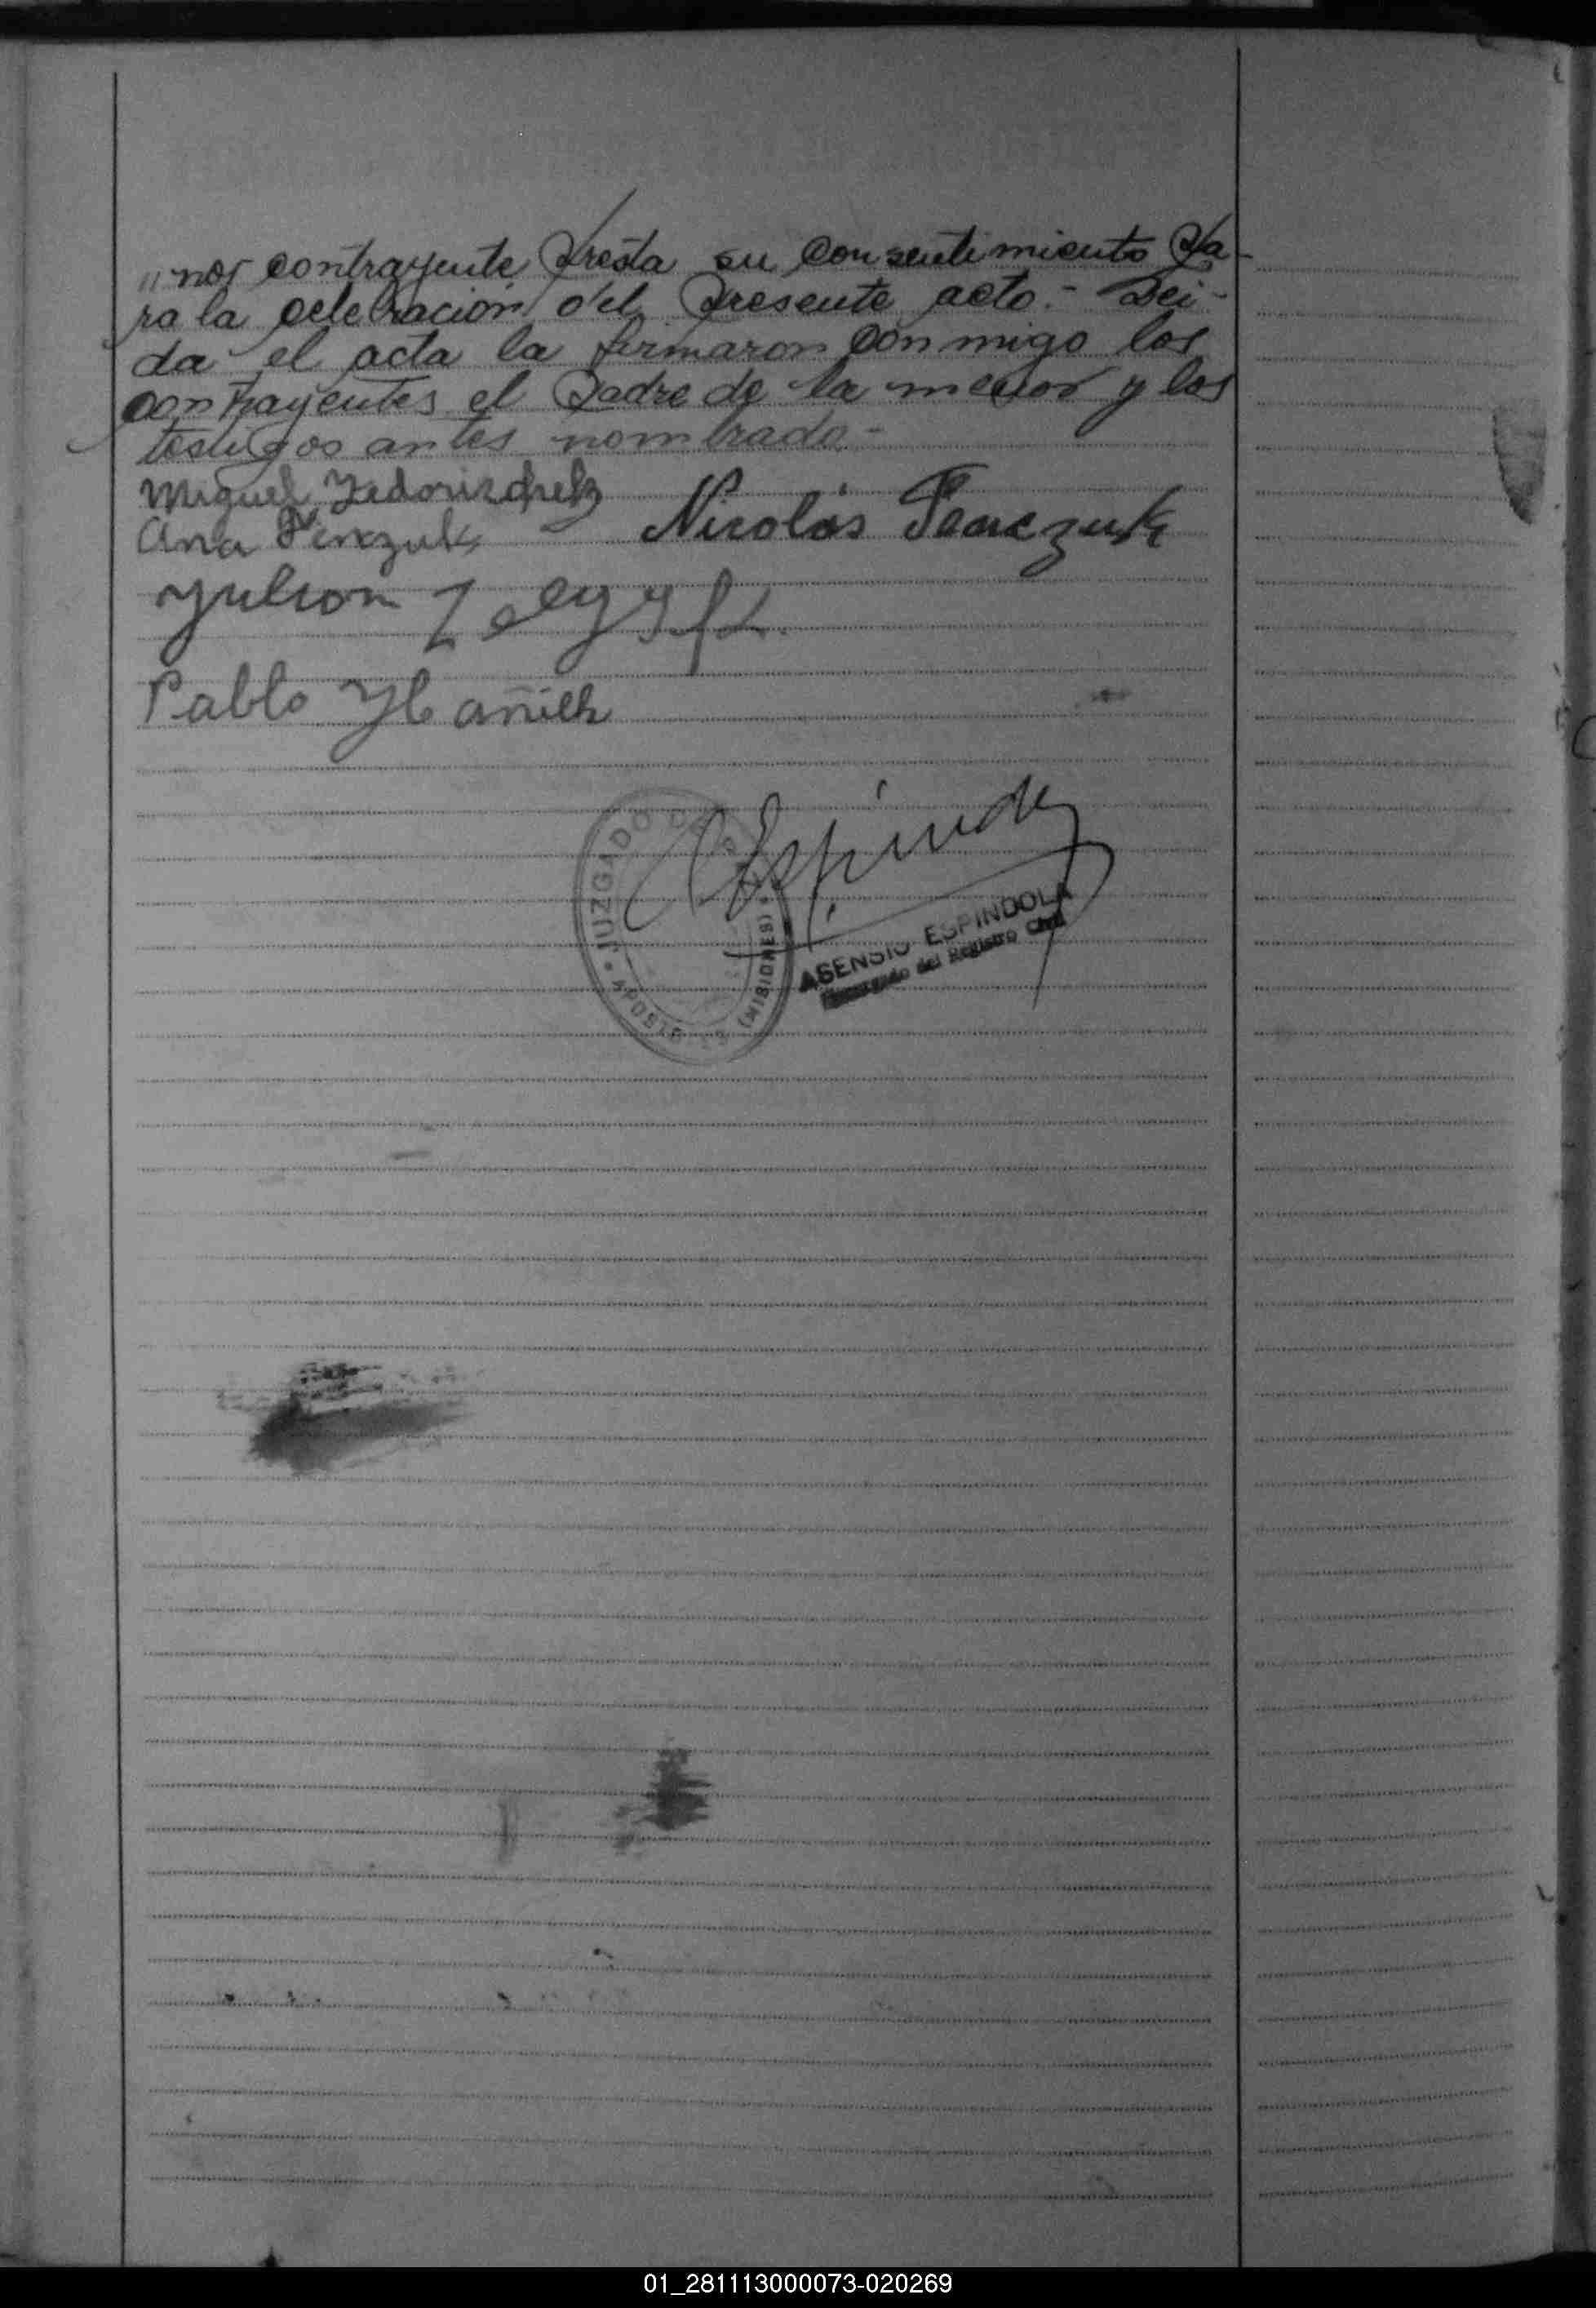 „nor contrayente presta su consentimiento pa-
ra la celebración del presente acto.- Lei-
da el acta la firmaron conmigo los
contrayentes el padre de la menor y los
testigos antes nombrado.-
Miguel
Ana Pinczuk Nicolás Panczuk
Julian
Pablo
Espindola
JUZGADO DE PAZ • APOSTOLES (MISIONES) •
ASENSIO ESPINDOLA
Encargado del Registro Civil
01_281113000073-020269